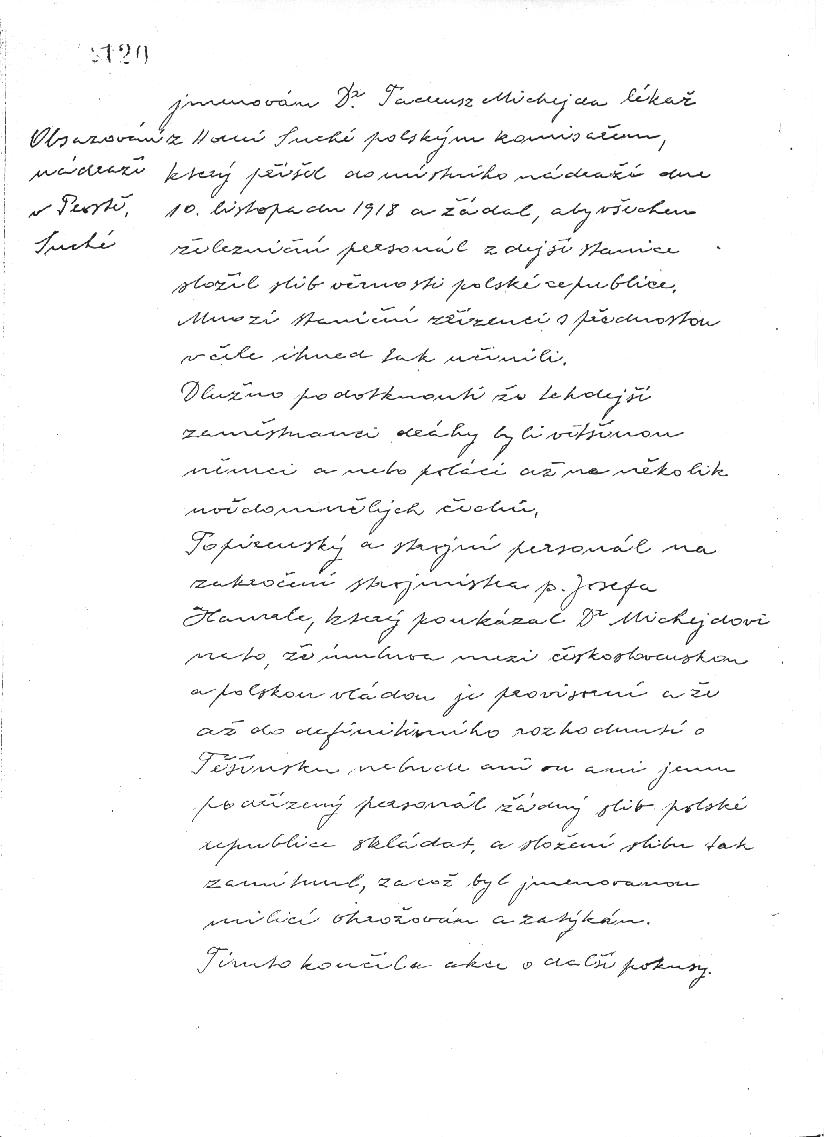 120
jmenován Dr Tadeusz Michejda lékař
Obsazování
nádraží
v Prostř.
Suché
z Horní Suché polským komisařem,
který přišel do místního nádraží dne
10. listopadu 1918 a žádal, aby všechen
železniční personál zdejší stanice
složil slib věrnosti polské republice.
Mnozí staniční zřízenci s přednostou
v čele ihned tak učinili.
Dlužno podotknouti že tehdejší
zaměstnanci dráhy byli většinou
němci a nebo poláci až na několik
uvědomnělých čechů.
Topírenský a strojní personál na
zakročení strojmistra p. Josefa
Hamrle, který poukázal Dr Michejdovi
na to, že úmluva mezi československou
a polskou vládou je provisorní a že
až do definitivního rozhodnutí o
Těšínsku nebude ani on ani jemu
podřízený personál žádný slib polské
republice skládat, a složení slibu tak
zamítnul, začož byl jmenovanou
milicí ohrožován a zatýkán.
Tímto končila akce o další pokusy.